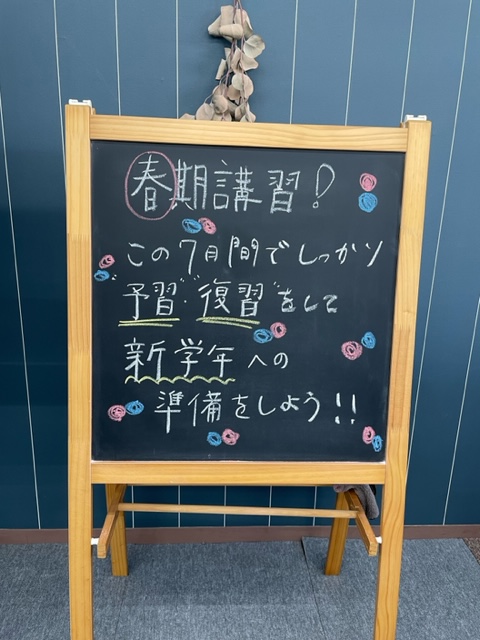 春期講習!
この7日間でしっかり
予習・復習をして
新学年への
準備をしよう!!